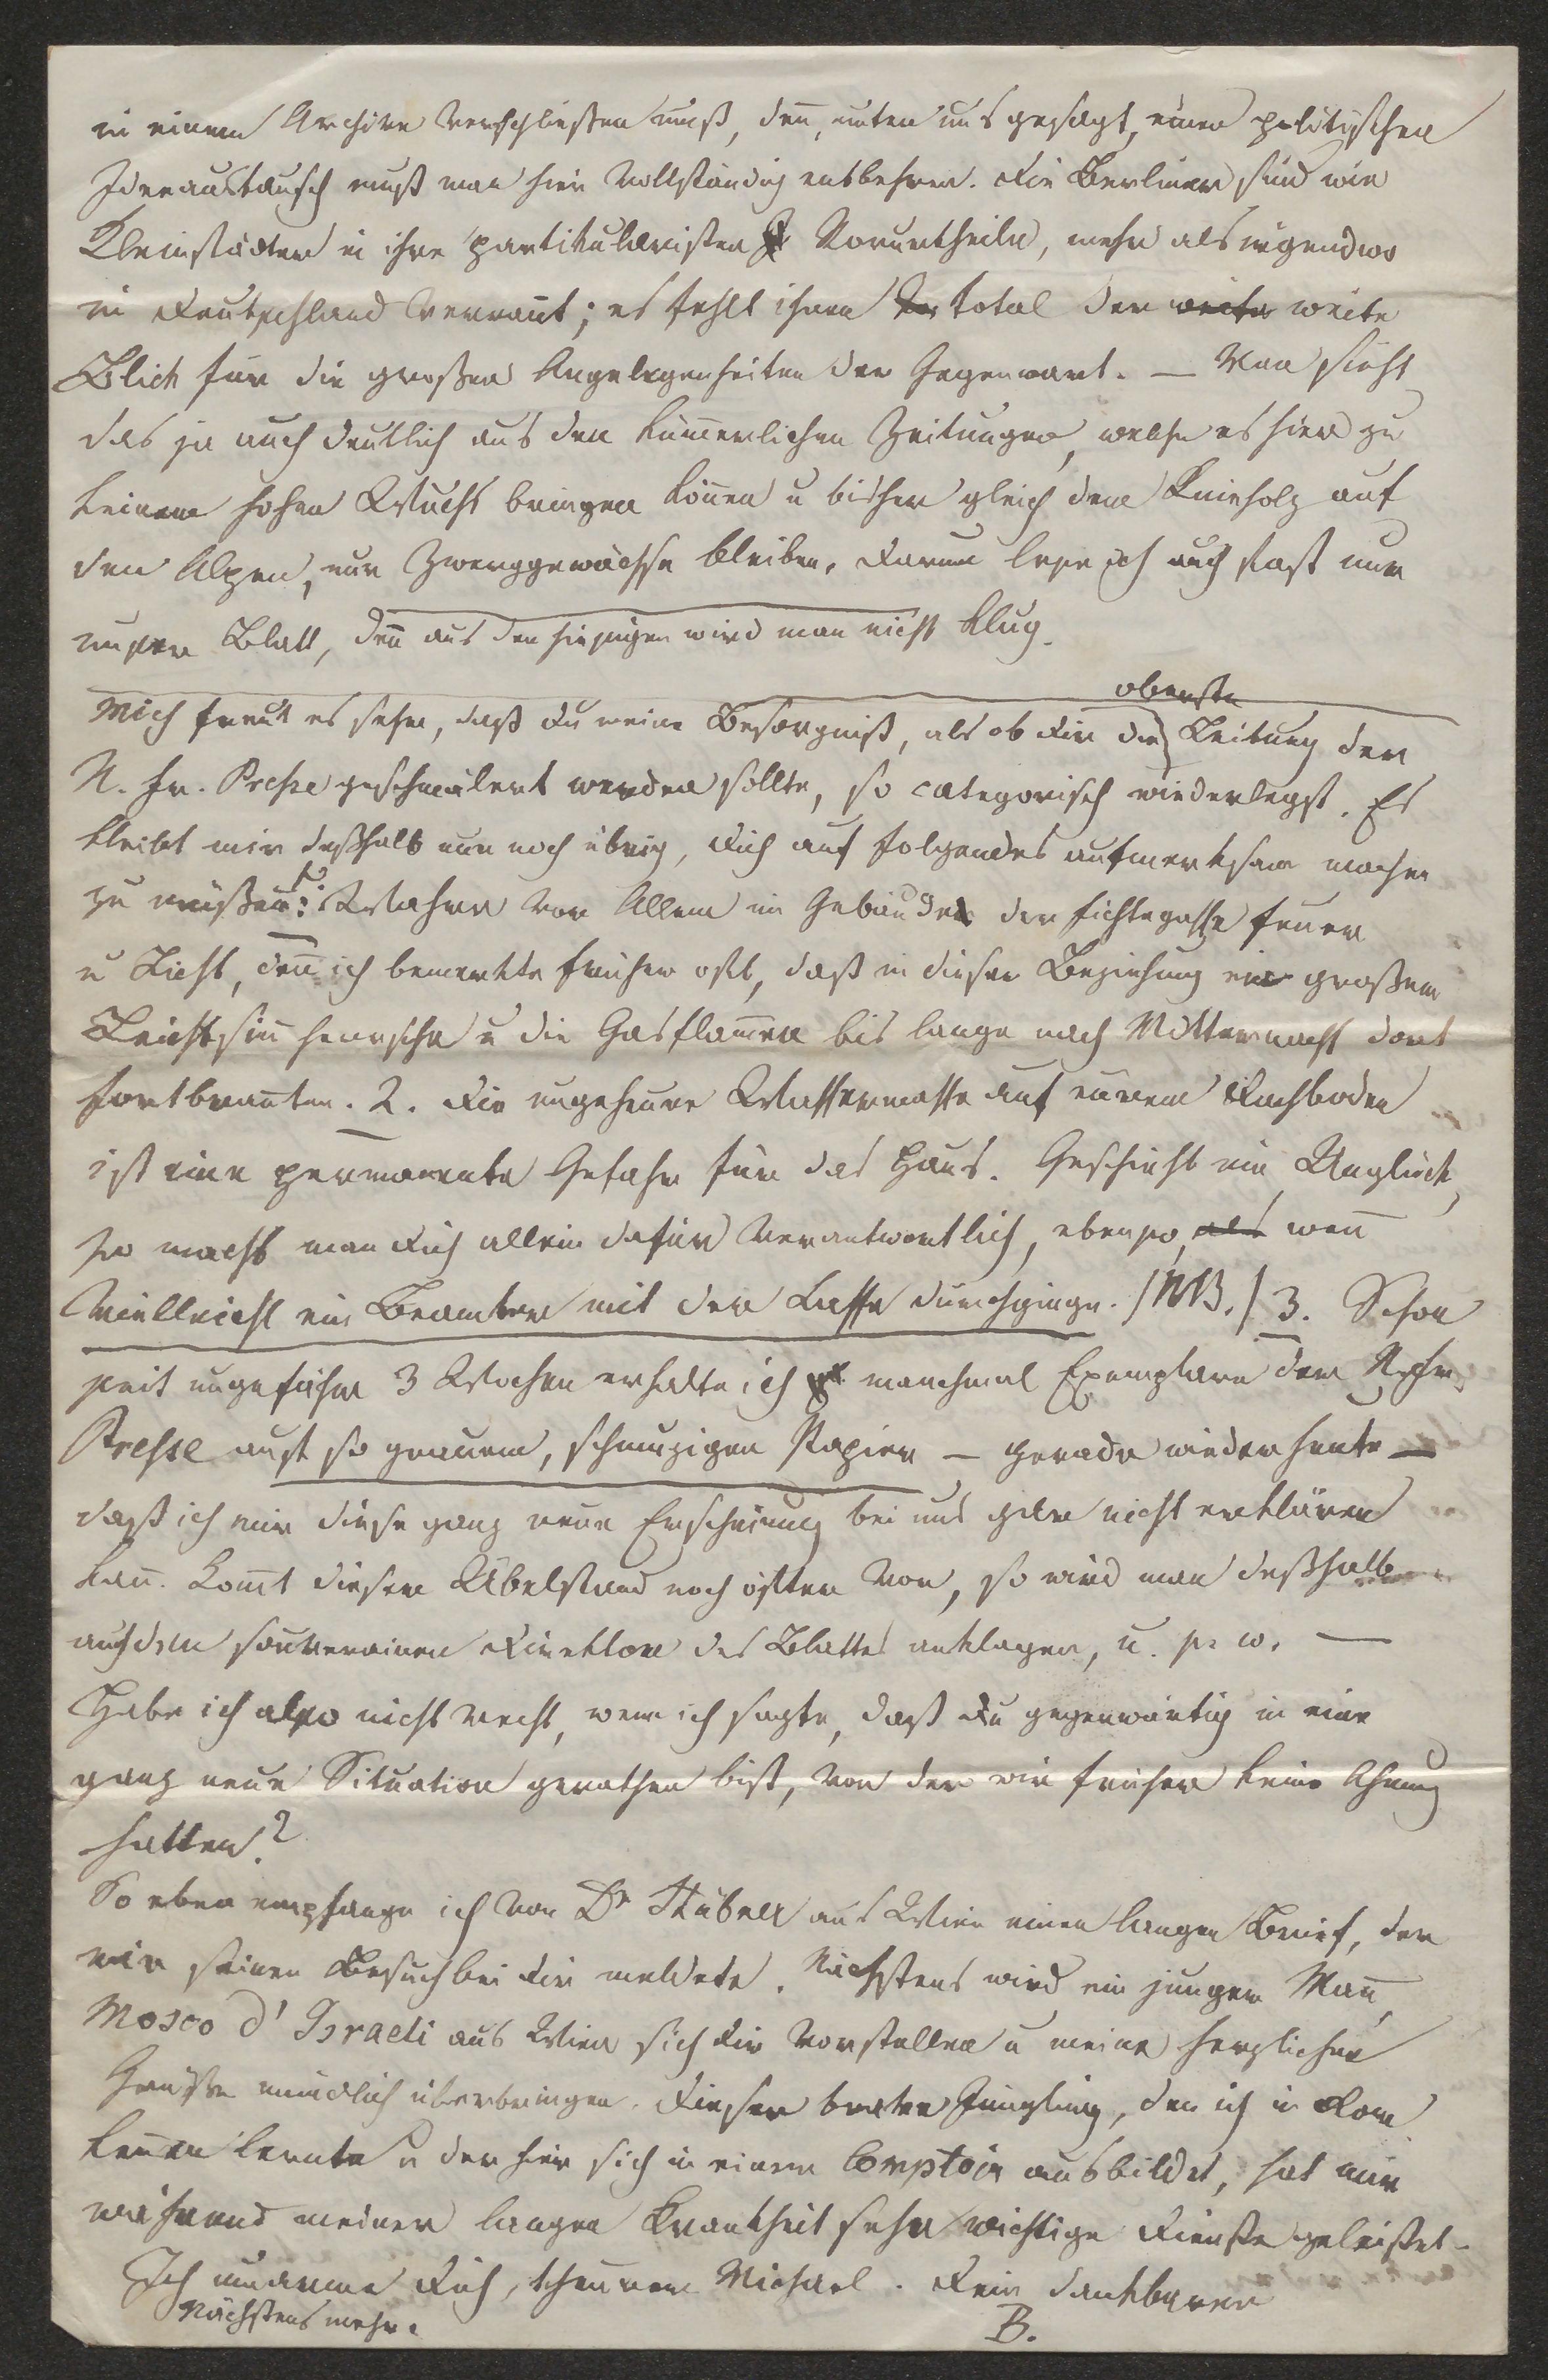 in einem Archive verschließen muß, deñ, unter uns gesagt, einen politischen
Ideenaustausch muß man hier vollständig entbehren. Die Berliner sind wie
Kleinstädter in ihre partikularisten Vorurtheile, mehr als irgendwo
in Deutschland verrañt; es fehlt ihnen total der weite weite
Blick für die großen Angelegenheiten der Gegenwart. — Man sieht
das ja auch deutlich aus den kümmerlichen Zeitungen, welche es hier zu
keinem hohen Wuchs bringen köñen u bisher gleich dem Knieholz auf
den Alpen, nur Zwerggewächse bleiben. Darum lese ich auch fast nur
unser Blatt, deñ aus den hiesigen wird man nicht klug.
Mich freut es sehr, daß Du meine Besorgniß, als ob Dir die oberste Leitung der
N. Fr. Presse geschmälert werden sollte, so categorisch wiederlegst. Es
bleibt mir deßhalb nur noch übrig, Dich auf folgendes aufmerksam machen
zu müßen: Wahre vor Allem im Gebäude der Fichtegasse Feuer
u Licht, deñ ich bemerkte früher oft, daß in dieser Beziehung ein großer
Leichtsiñ herrsche u die Gasflam̃en bis lange nach Mitternacht dort
fortbrañten. 2. Die ungeheure Wassermasse auf eurem Dachboden
ist eine permanente Gefahr für das Haus. Geschieht ein Unglück,
so macht man Dich allein dafür verantwortlich, ebenso, als weñ
vielleicht ein Beamter mit der Kasse durchginge. /NB./ 3. Schon
seit ungefähr 3 Wochen erhalte ich manchmal Exemplare der N. Fr.
Presse auf so grauem, schmuzigen Papier — gerade wieder heute —
daß ich mir diese ganz neue Erscheinung bei uns gar nicht erklären
kañ. Kom̃t dieser Übelstand noch öfter vor, so wird man deßhalb
auch den souverainen Direktor des Blattes anklagen, u. s. w. —
Habe ich also nicht recht, wenn ich sagte, daß Du gegenwärtig in eine
ganz neue Situation gerathen bist, von der wir früher keine Ahnung
hatten?
So eben empfange ich von Dr Stübel aus Wien einen langen Brief, der
mir seinen Besuch bei Dir meldete. Nächstens wird ein junger Mañ,
Mosco d'Israeli aus Wien sich Dir vorstellen u meine herzlichen
Grüße mündlich überbringen. Dieser brave Jüngling, den ich in Rom
keñen lernte u der hier sich in einem Comptoir ausbildet, hat mir
während meiner langen Krankheit sehr wichtige Dienste geleistet.
Ich umarme Dich, theurer Michael. Dein dankbarer
Nächstens mehr. B.